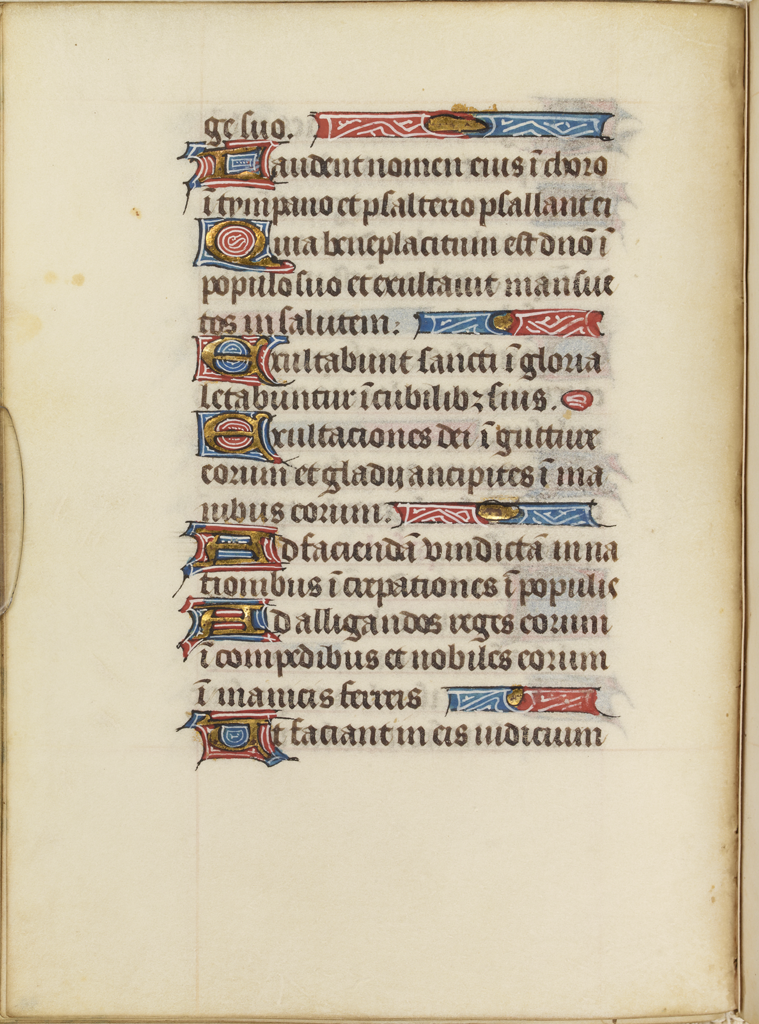 ge suo.
Laudent nomen eius ī choro
ī tympano et psalterio psallant ei
Quia beneplacitum est dnō ī
populo suo et exultauit mansue
tos in salutem.
Exultabunt sancti ī gloria
letabuntur ī cubilibꝫ suis.
Exultaciones dei ī gutture
eorum et gladij ancipites ī ma
nibus eorum.
Ad faciendā vindictā in na
tionibus ī crepationes ī populis
Ad alligandos reges eorum
ī compedibus et nobiles eorum
ī manicis ferreis
Ut faciant in eis iudicium